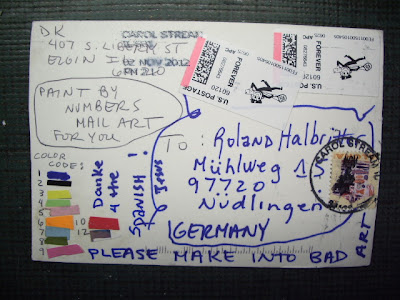 DK
407 S. LIBERTY ST
ELGIN IL
60120
CAROL STREAM
02 NOV 2012
PM
U.S. POSTAGE
FOREVER
60120
FOREVER
60120
PAINT BY
NUMBERS
MAIL ART
FOR YOU
COLOR
CODES:
1
2
3
4
5
6
7
8
9
10
12
Danke
4 the
Spanish
!
TO: Roland Halbritter
Mühlweg 1
97720
Nüdlingen
GERMANY
CAROL STREAM
PLEASE MAKE INTO BAD ART